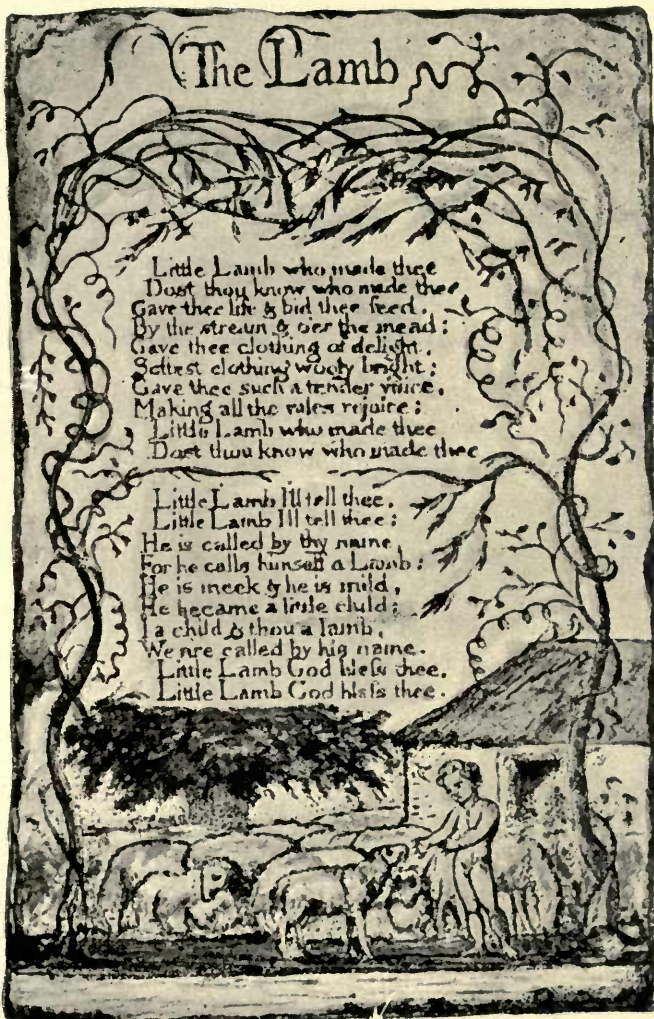 The Lamb
Little Lamb who made thee
Dost thou know who made thee
Gave thee life & bid thee feed.
By the stream & o'er the mead;
Gave thee clothing of delight,
Softest clothing wooly bright;
Gave thee such a tender voice,
Making all the vales rejoice;
Little Lamb who made thee
Dost thou know who made thee
Little Lamb I'll tell thee,
Little Lamb I'll tell thee;
He is called by thy name,
For he calls himself a Lamb:
He is meek & he is mild,
He became a little child:
I a child & thou a lamb,
We are called by his name.
Little Lamb God bless thee.
Little Lamb God bless thee.